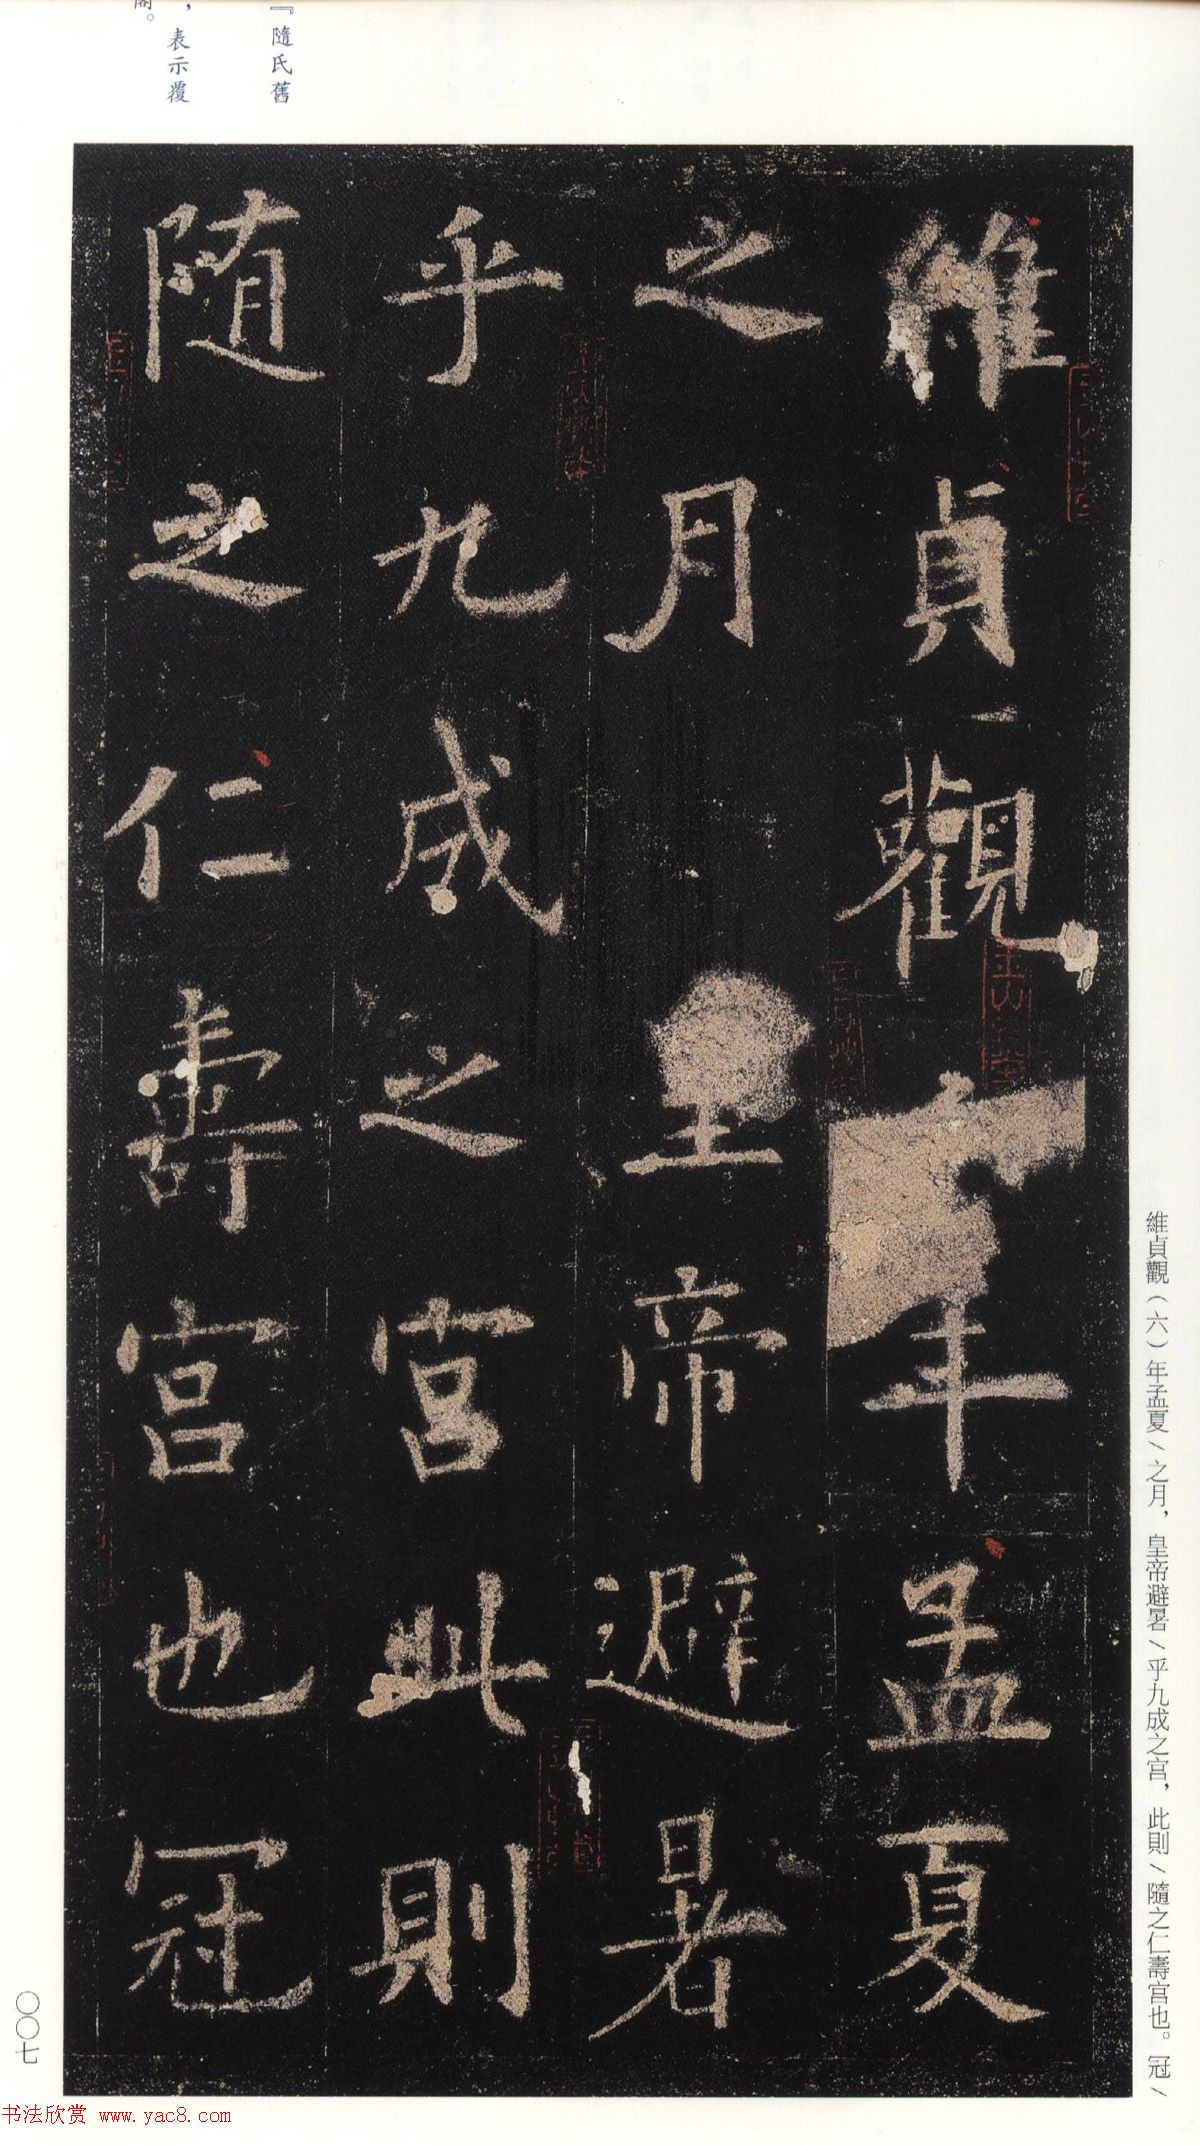 維貞觀年孟夏
之月皇帝避暑
乎九成之宮此則
隨之仁壽宮也冠
維貞觀（六）年孟夏＼之月，皇帝避暑＼乎九成之宮，此則＼隨之仁壽宮也。冠＼
『隨氏舊
，表示覆
閣。
〇〇七
书法欣赏 www.yac8.com